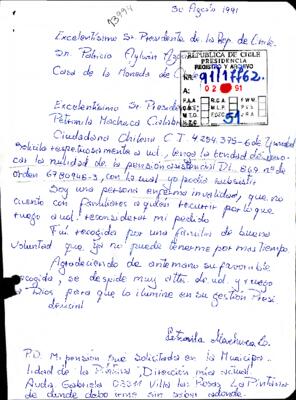 13994
30 Agosto 1991
Excelentísimo Sr. Presidente de la Rep de Chile.
Sn. Patricio Aylwin
Casa de la Moneda de
REPUBLICA DE CHILE
PRESIDENCIA
REGISTRO Y ARCHIVO
NR. 91/17762
A: 02 91
P.A.A. R.C.A. F.W.M.
C.B.E. M.L.P. P.V.S.
M.T.O. EDEC J.R.A.
M.Z.C.
Excelentísimo Sr Presid
Petronila Machuca
Ciudadana Chilena C I 4.254.375-6 de
Solicito respetuosamente a ud, tenga la bondad de
car la nulidad de la pensión asistencial D.L. 869. nº de
orden 6780946-3, con la cual yo podía subsistir
Soy una persona enferma invalidad, que no
cuento con familiares a quien recurrir por lo que
ruego a ud! reconsiderar mi pedido
Fuí recogida por una familia de buena
voluntad que ya no puede tenerme por mas tiempo.
Agradeciendo de antemano su favorable
acogida, se despide muy atte. de ud. y ruego
a Dios para que lo ilumine en su gestión Presi
dencial
Petronila Machuca C.
P.D. Mi pensión fue solicitada en la Municipa
lidad de la Pintana, Dirección mía actual
Avda. Gabriela 03511 Villa las Rosas La Pintana
de donde debo irme sin saber adonde.